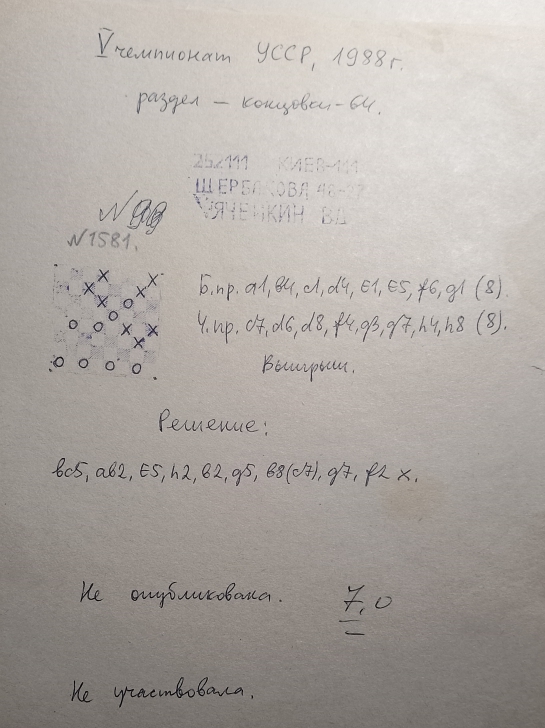 V чемпионат УССР, 1988 г.
раздел – концовки-64.
252111 КИЕВ-111
ЩЕРБАКОВА
ВД
N 99
N1581.
Б.пр. a1, в4, c1, d4, E1, E5, f6, g1 (8).
Ч.пр. c7, d6, d8, f4, g3, g7, h4, h8 (8).
Выигрыш.
Решение:
вc5, aв2, E5, h2, B2, g5, B8(c7), g7, f2 x.
Не опубликована. 7,0
Не участвовала.